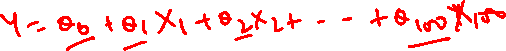 Y = θ₀ + θ₁ X₁ + θ₂ X₂ + - - - + θ₁₀₀ X₁₀₀